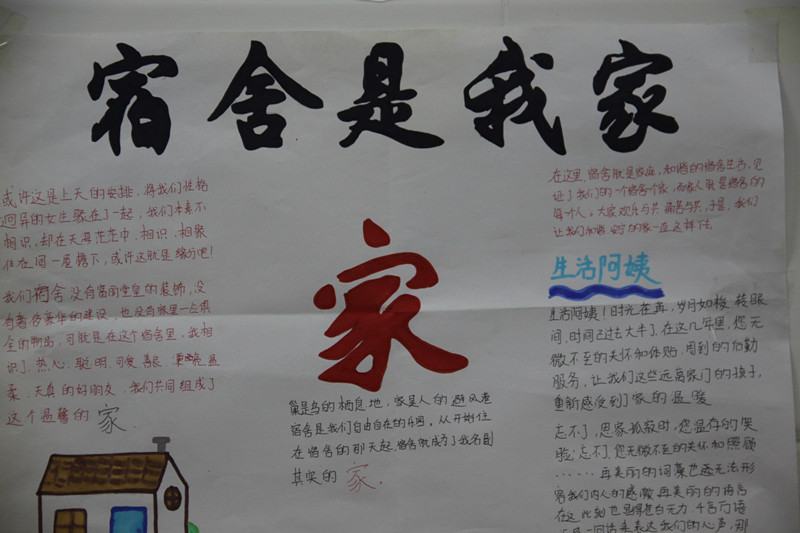 宿舍是我家
或许这是上天的安排，将我们性格
迥异的女生聚在了一起，我们本素不
相识，却在天海茫茫中，相识，相聚
住在同一屋檐下，或许这就是缘分吧！
我们宿舍没有富丽堂皇的装饰，没
有奢侈豪华的建设，也没有家里一应俱
全的物品，可就是在这个宿舍里，我相
识了，热心，聪明，可爱，善良，温
柔，天真的好朋友，我们共同组成了
这个温馨的 家
家
巢是鸟的栖息地，家是人的避风港
宿舍是我们自由自在的乐园，从开始住
在宿舍的那天起，宿舍就成了我名副
其实的 家.
在这里，宿舍就是家庭，和谐的宿舍生活，见
证了我们的一个宿舍一个家，而家人就是宿舍的
每个人。大家欢乐与共，痛苦与共，于是，我们
让我们和谐安宁的家一直这样下去
生活阿姨
生活阿姨！时光荏苒，岁月如梭，转眼
间，时间已过去大半了，在这几年里，您无
微不至的关怀和体贴，周到的后勤
服务，让我们这些远离家门的孩子，
重新感受到了家的温暖
忘不了，思家孤寂时，您温存的笑
脸；忘不了，您无微不至的关怀和照顾
……再美丽的词藻也无法形
容我们内心的感激，再美丽的语言
在这此刻也显得苍白无力，千言万语
一句话来表达我们的心声，那